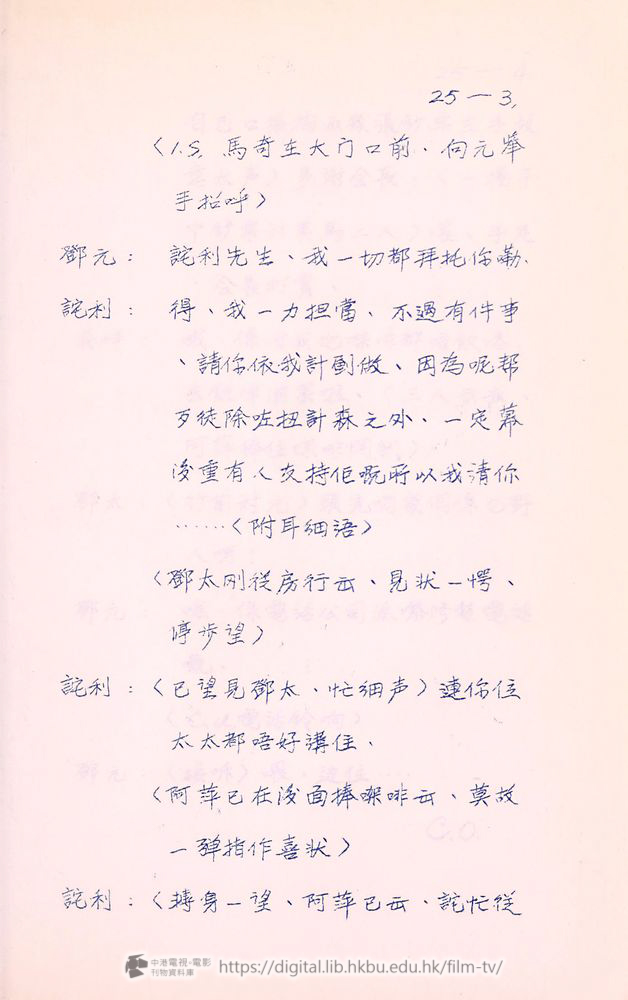 25—3,
〈I.S. 馬奇在大门口前、向元舉
手招呼〉
鄧元：詫利先生、我一切都拜托你嘞、
詫利：得、我一力担當、不過有件事
、請你依我計劃做、因為呢帮
歹徒除咗扭計森之外、一定幕
後重有人支持佢嘅所以我請你
……〈附耳細語〉
〈鄧太刚從房行云、見狀一愕、
停步望〉
詫利：〈已望見鄧太、忙細声〉連你位
太太都唔好講住、
〈阿萍已在後面捧㗎啡云、莫故
一彈指作喜狀〉
詫利：〈轉身一望、阿萍已云、詫忙從
C.O.
中港電視・電影
刊物資料庫
https://digital.lib.hkbu.edu.hk/film-tv/